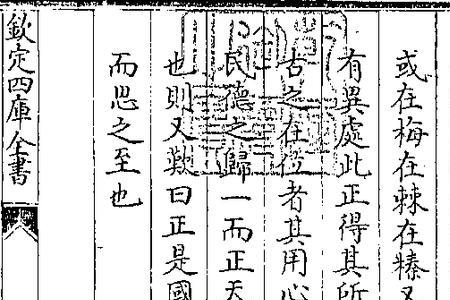 或在梅在棘在榛又
有異處此正得其所
古之在位者其用心
民德之歸一而正天
也則又歎曰正是國
而思之至也
欽定四庫全書